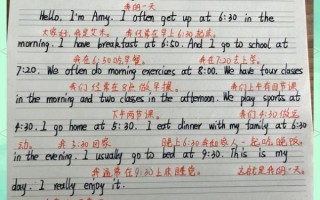 我的一天
Hello, I'm Amy. I often get up at 6:30 in the
大家好,我是艾米。我经常在早上6:30起床
morning. I have breakfast at 6:50. And I go to school at
我在6:50吃早餐。 我在7:20去上学。
7:20. We often do morning exercises at 8:00. We have four classes
我们经常在8点做早操 我们上午有四节课
in the morning and two classes in the afternoon. We play sports at
下午两节课 我们4:30做运
4:30. I go home at 5:30. I eat dinner with my family at 6:30
动。 我5:30回家 晚上6:30我和家人一起吃晚饭
in the evening. I usually go to bed at 9:30. This is my
我通常在9:30上床睡觉 这就是我的一天
day. I really enjoy it.